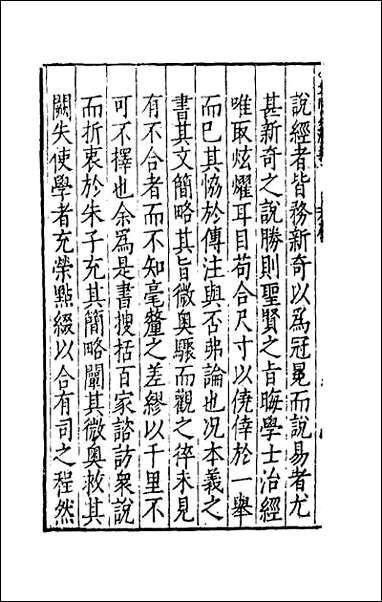 說經者皆務新奇以爲冠冕而說易者尤
甚新奇之說勝則聖賢之旨晦學士治經
唯取炫燿耳目苟合尺寸以僥倖於一舉
而已其恊於傳注與否弗論也况本義之
書其文簡略其旨微奧驟而觀之倅未見
有不合者而不知毫釐之差繆以千里不
可不擇也余爲是書搜括百家諮訪衆說
而折衷於朱子充其簡略闡其微奧救其
闕失使學者充榮點綴以合有司之程然